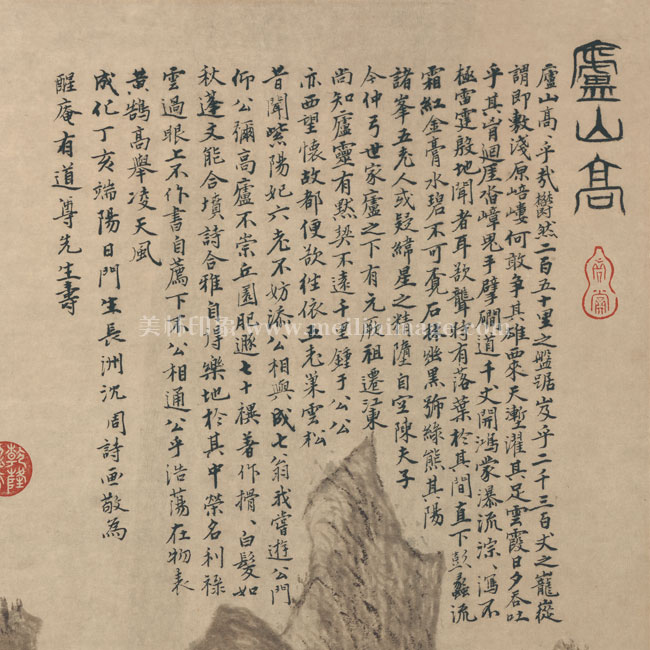 廬山高
廬山高高乎哉鬱然二百五十里之盤踞岌乎二千三百丈之巃嵸
謂即敷淺原嶁何敢爭其雄西來天塹濯其足雲霞日夕吞吐
乎其胷迴崖沓嶂鬼手擘磵道千丈開鴻蒙瀑流淙瀉不
極雷霆殷地聞者耳欲聾時有落葉於其間直下彭蠡流
霜紅金膏水碧不可覓石林幽黑號綠熊其陽
諸峯五老人或疑緯星之精墮自空陳夫子
今仲弓世家廬之下有元厥祖遷江東
尚知廬靈有默契不遠千里鍾于公公
亦西望懷故都便欲往依五老巢雲松
昔聞紫陽妃六老不妨添公相與成七翁我嘗遊公門
仰公彌高廬不崇丘園肥遯七十禩著作搰搰白髮如
秋蓬文能合墳詩合雅自得樂地於其中榮名利祿
雲過眼上不作書自薦下不公相通公乎浩蕩在物表
黃鵠高舉凌天風
成化丁亥端陽日門生長洲沈周詩畫敬為
醒庵有道尊先生壽
啟南
乾隆
美林印象 www.meilinimage.com